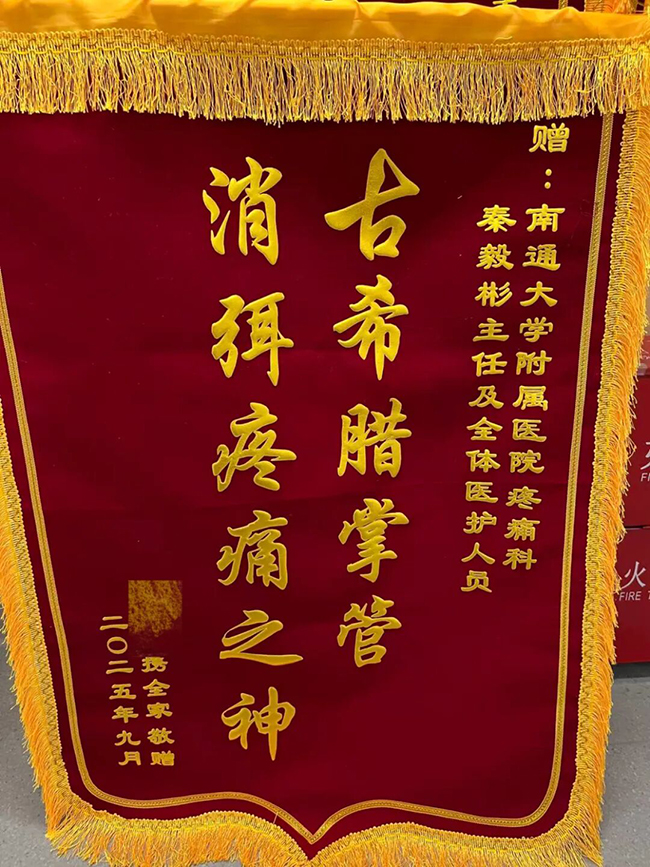 赠：南通大学附属医院疼痛科
秦毅彬主任及全体医护人员
古希腊掌管
消弭疼痛之神
携全家敬赠
二〇二五年九月
火
FIRE